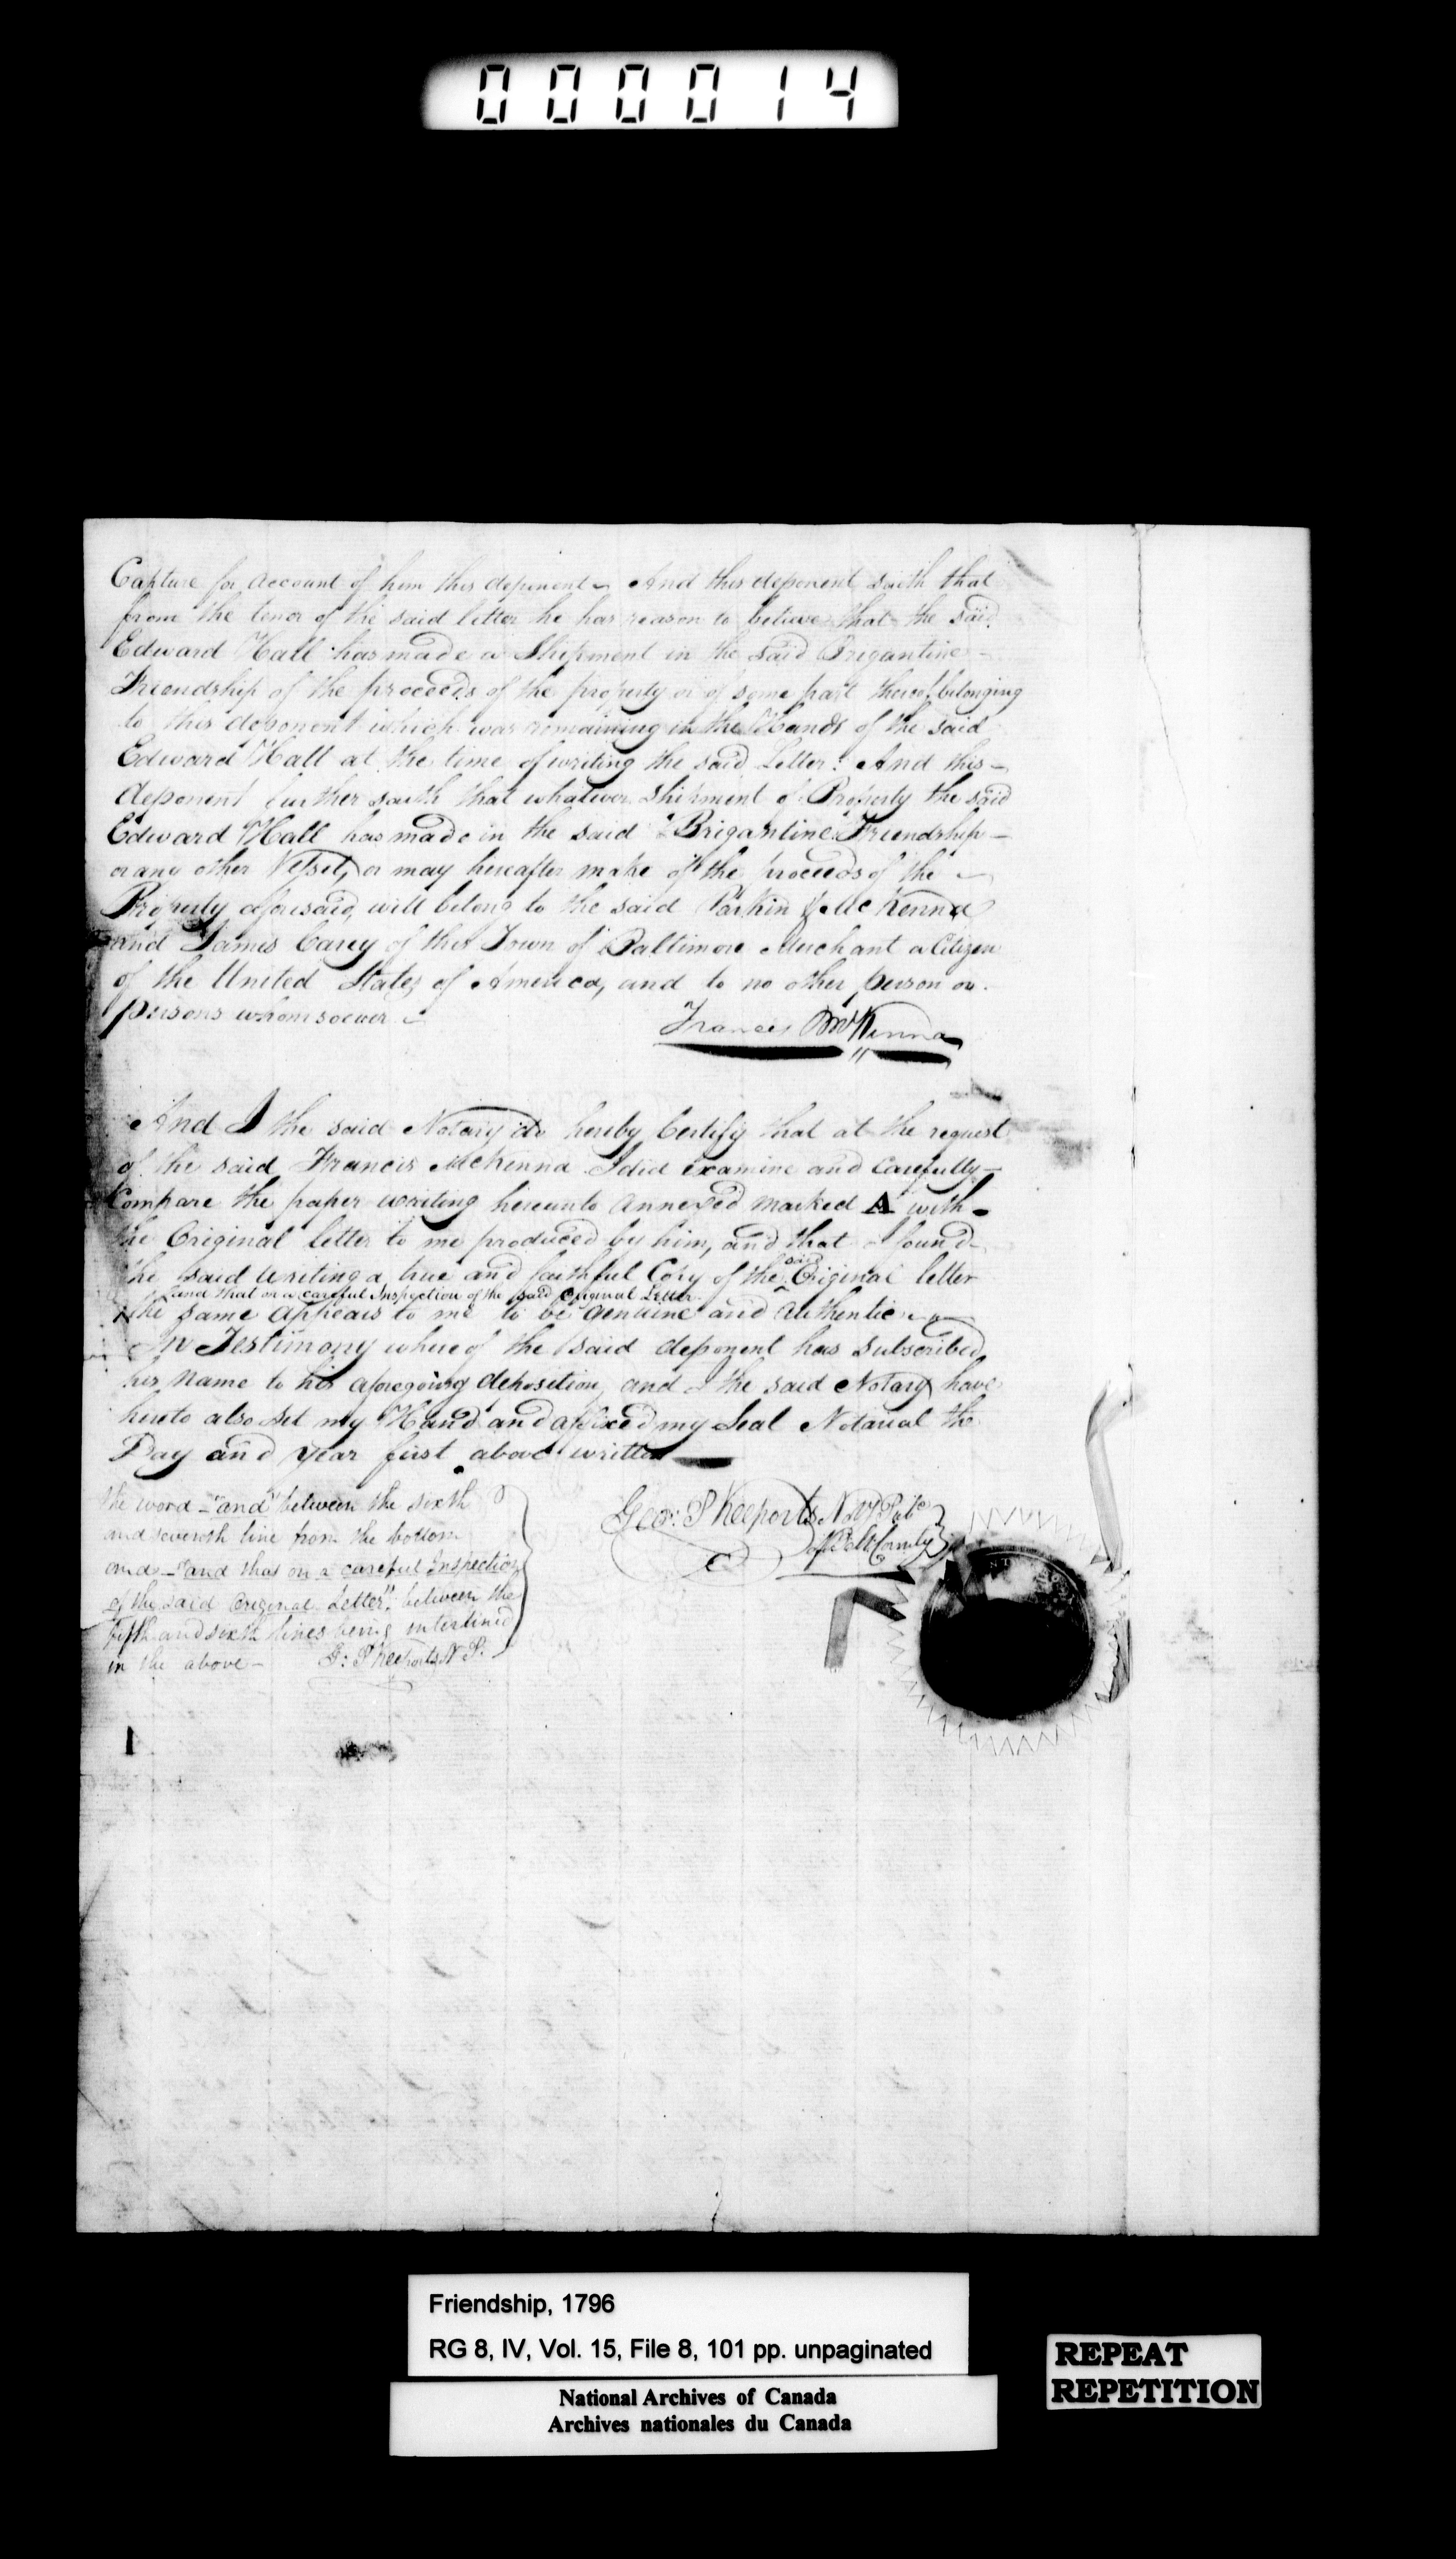 000014
Capture for account of him this deponent – And this deponent saith that
from the tenor of the said letter he has reason to believe that the said
Edward Hall has made a Shipment in the said Brigantine –
Friendship of the proceeds of the property or of some part thereof belonging
to this deponent which was remaining in the Hands of the said
Edward Hall at the time of writing the said Letter: And this –
deponent further saith that whatever Shipment of Property the said
Edward Hall has made in the said Brigantine Friendship –
or any other Vessel, or may hereafter make of the proceeds of the –
Property aforesaid, will belong to the said Parkin & McKenna
and James Carey of this Town of Baltimore Merchant a Citizen
of the United States of America, and to no other person or
persons whomsoever –
Francis McKenna
And I the said Notary do hereby Certify that at the request
of the said Francis McKenna I did examine and Carefully –
Compare the paper writing hereunto annexed marked A with –
the Original letter to me produced by him, and that I found –
the said writing a true and faithful Copy of the said Original letter
and that on a careful Inspection of the said Original Letter
the same appears to me to be genuine and authentic –
In Testimony whereof the said deponent has subscribed
his Name to his aforegoing deposition, and I the said Notary have
hereto also set my Hand and affixed my Seal Notarial the
Day and year first above written
the word – "and" between the sixth
and seventh line from the bottom
and – "and that on a careful Inspection
of the said Original Letter" between the
fifth and sixth lines being interlined
in the above –
G: P Keeports N P.
Geo: P Keeports Noty Pub
of Balt County
Friendship, 1796
RG 8, IV, Vol. 15, File 8, 101 pp. unpaginated
National Archives of Canada
Archives nationales du Canada
REPEAT
REPETITION